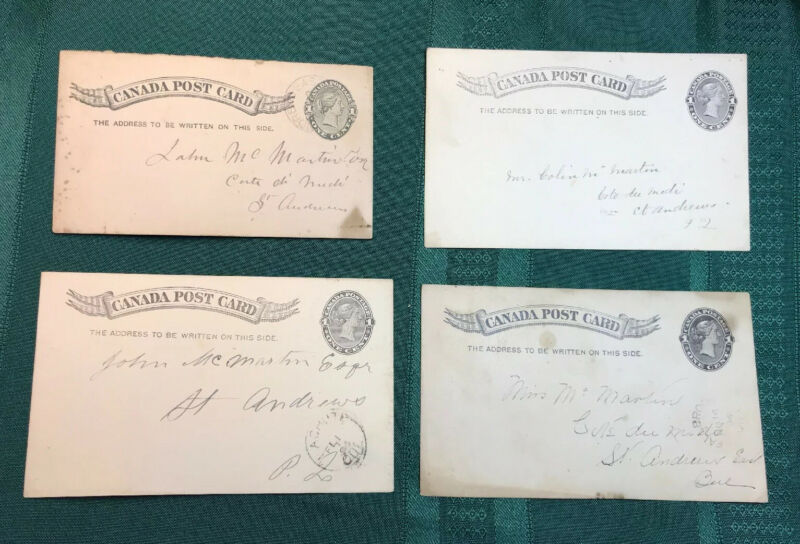 CANADA POST CARD
CANADA POSTAGE
ONE CENT
THE ADDRESS TO BE WRITTEN ON THIS SIDE.
John McMartin
St Andrews
CANADA POST CARD
CANADA POSTAGE
ONE CENT
THE ADDRESS TO BE WRITTEN ON THIS SIDE.
Mr. Colin Mc Martin
Cote du midi
St Andrews
P Q
CANADA POST CARD
CANADA POSTAGE
ONE CENT
THE ADDRESS TO BE WRITTEN ON THIS SIDE.
John McMartin Esqr
St Andrews
P. Q
CANADA POST CARD
CANADA POSTAGE
ONE CENT
THE ADDRESS TO BE WRITTEN ON THIS SIDE.
Miss Mc Martin
Cote du Midi
St. Andrews East
Que